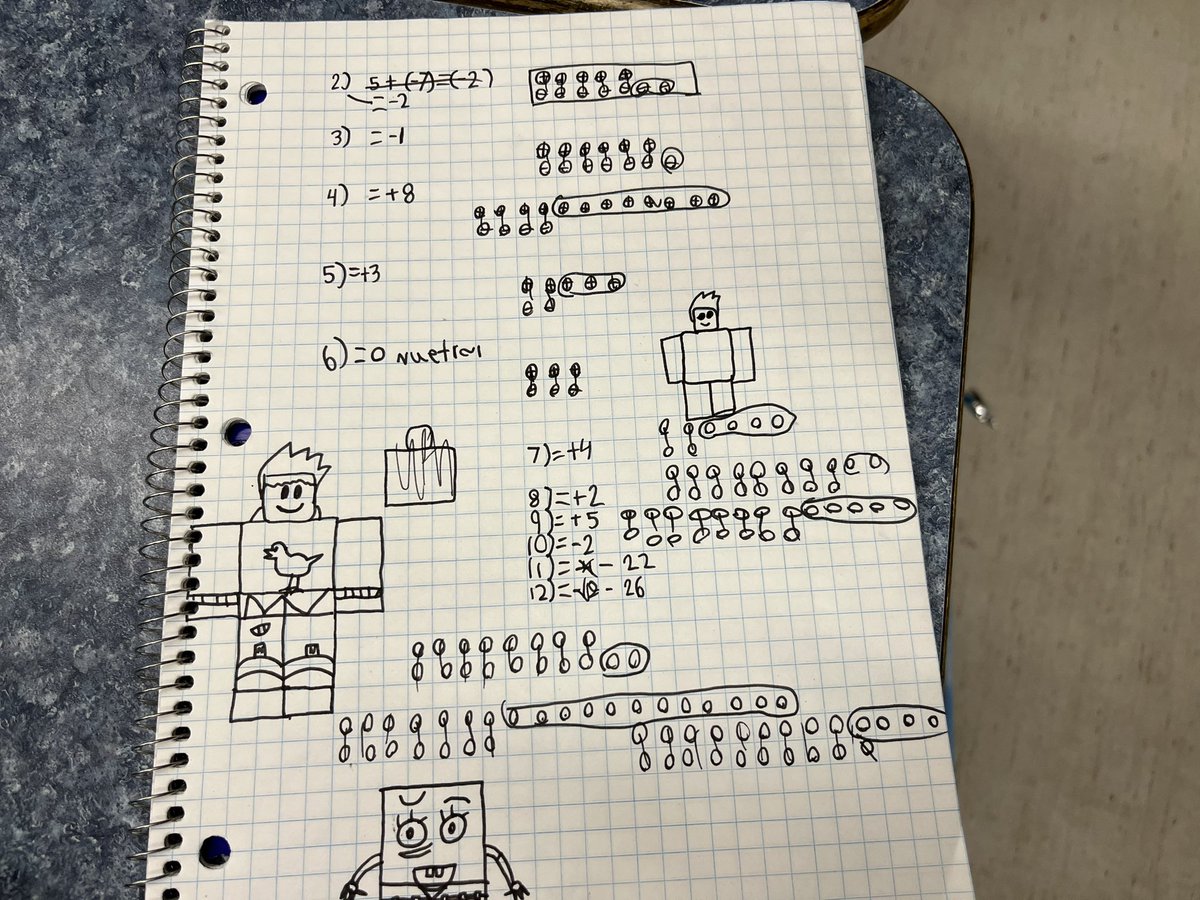 2) 5 + (-7) = (-2)
= -2
3) = -1
4) = +8
5) = +3
6) = 0 nuetral
7) = +4
8) = +2
9) = +5
10) = -2
11) = - 22
12) = - 26